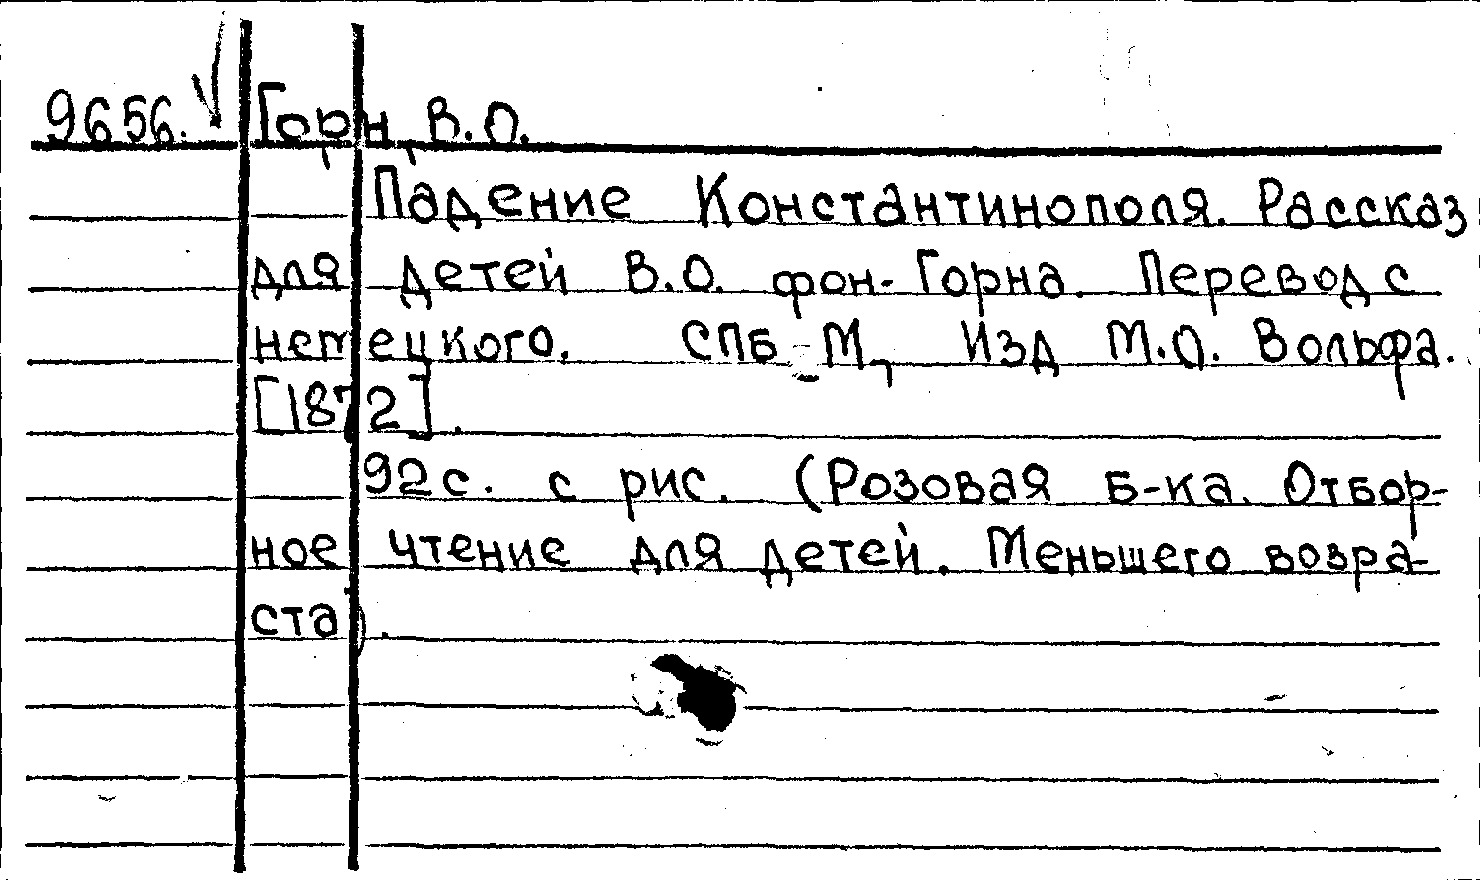 9656. Горн, В.О.
Падение Константинополя. Рассказ
для детей В.О. фон-Горна. Перевод с
немецкого. СПБ-М, Изд М.О. Вольфа.
[1872].
92с. с рис. (Розовая б-ка. Отбор-
ное чтение для детей. Меньшего возра-
ста).